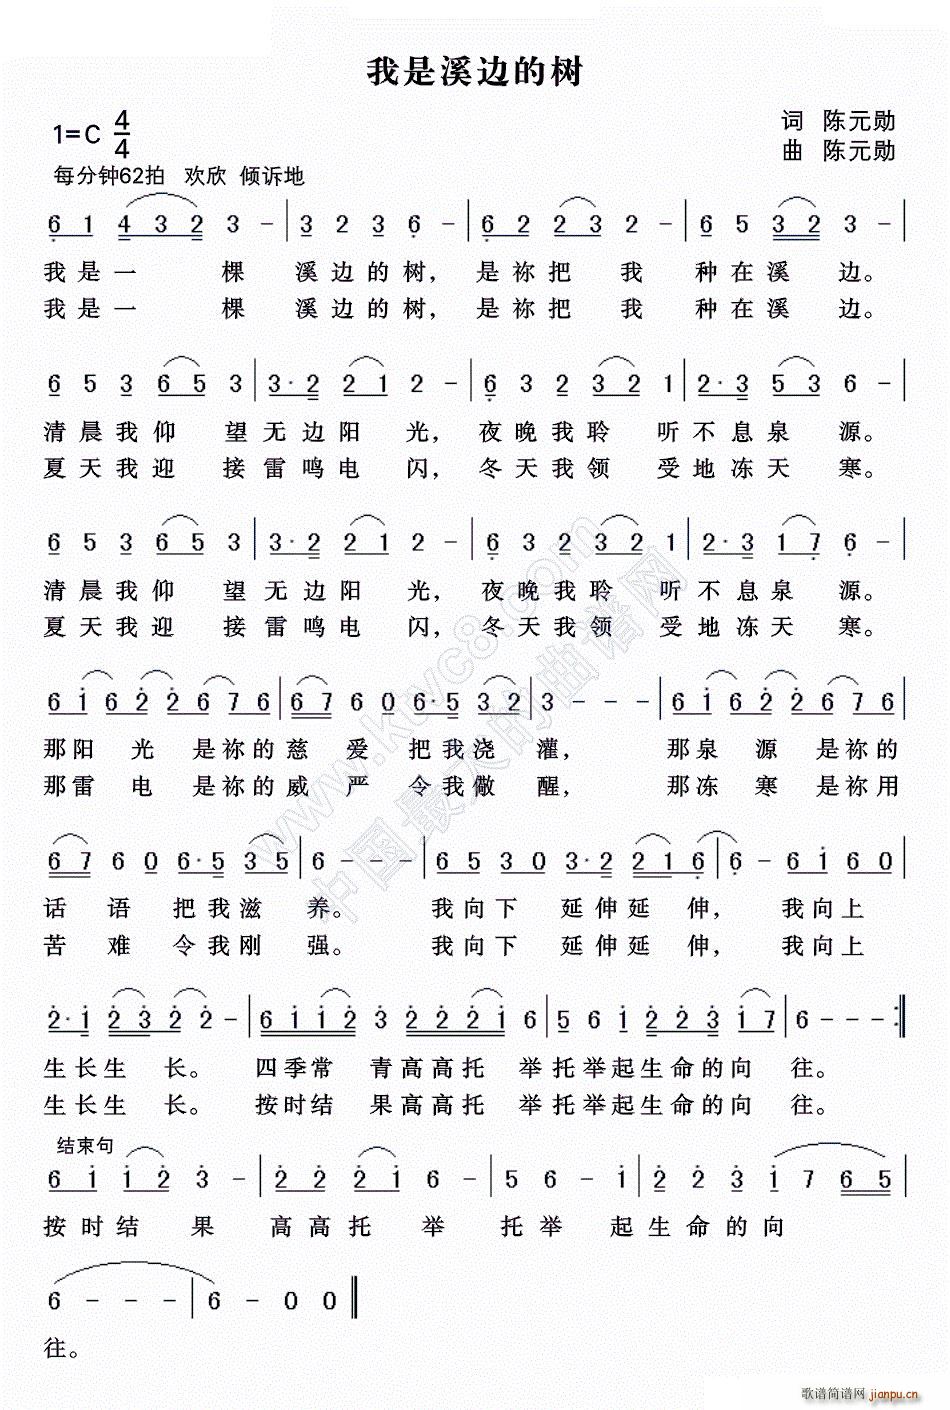 我是溪边的树
1=C 4/4
词 陈元勋
曲 陈元勋
每分钟62拍 欢欣 倾诉地
6 1 4 3 2 3 - | 3 2 3 6 - | 6 2 2 3 2 - | 6 5 3 2 3 - |
我是一 棵 溪边的树, 是祢把 我 种在溪 边。
我是一 棵 溪边的树, 是祢把 我 种在溪 边。
6 5 3 6 5 3 | 3· 2 2 1 2 - | 6 3 2 3 2 1 | 2· 3 5 3 6 - |
清晨我仰 望无边阳 光, 夜晚我聆 听不息泉 源。
夏天我迎 接雷鸣电 闪, 冬天我领 受地冻天 寒。
6 5 3 6 5 3 | 3· 2 2 1 2 - | 6 3 2 3 2 1 | 2· 3 1 7 6 - |
清晨我仰 望无边阳 光, 夜晚我聆 听不息泉 源。
夏天我迎 接雷鸣电 闪, 冬天我领 受地冻天 寒。
6 1 6 2 2 6 7 6 | 6 7 6 0 6· 5 3 2 | 3 - - - | 6 1 6 2 2 6 7 6 |
那阳 光 是祢的慈 爱 把我浇 灌, 那泉 源 是祢的
那雷 电 是祢的威 严 令我儆 醒, 那冻 寒 是祢用
6 7 6 0 6· 5 3 5 | 6 - - - | 6 5 3 0 3· 2 2 1 6 | 6 - 6 1 6 0 |
话 语 把我滋 养。 我向下 延伸延 伸, 我向上
苦 难 令我刚 强。 我向下 延伸延 伸, 我向上
2· 1 2 3 2 2 - | 6 1 1 2 3 2 2 2 1 6 | 5 6 1 2 2 3 1 7 | 6 - - - :‖
生长生 长。 四季常 青高高托 举托举起生命的向 往。
生长生 长。 按时结 果高高托 举托举起生命的向 往。
结束句
6 1 1 2 3 - | 2 2 2 1 6 - | 5 6 1 - | 2 2 3 1 7 6 5 |
按时结 果 高高托 举 托举 起生命的向
6 - - - | 6 - 0 0 ‖
往。
www.ktvc8.com
中国最大的曲谱网
歌谱简谱网 jianpu.cn